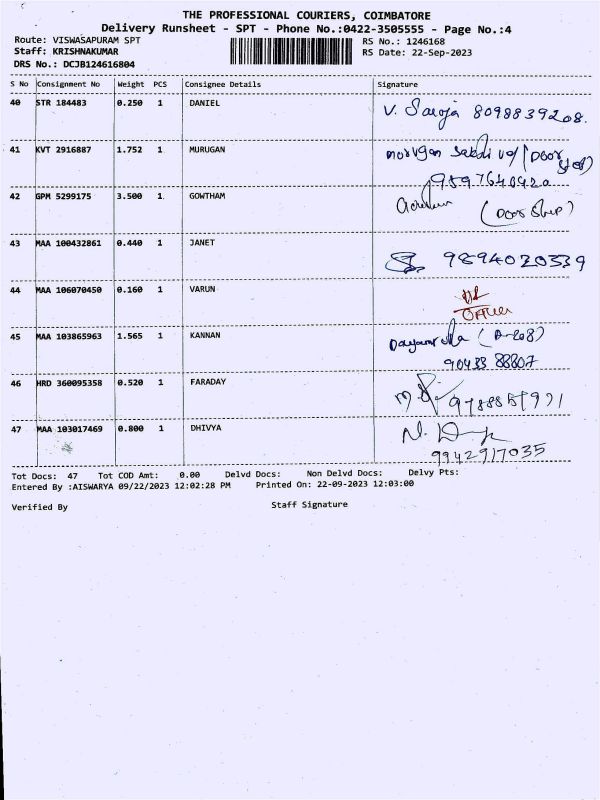 THE PROFESSIONAL COURIERS, COIMBATORE
Delivery Runsheet - SPT - Phone No.:0422-3505555 - Page No.:4
Route: VISWASAPURAM SPT
Staff: KRISHNAKUMAR
DRS No.: DCJB124616804
RS No.: 1246168
RS Date: 22-Sep-2023
S No Consignment No Weight PCS Consignee Details Signature
40 STR 184483 0.250 1 DANIEL V. Saroja 8098839208.
41 KVT 2916887 1.752 1 MURUGAN (Door
42 GPM 5299175 3.500 1 GOWTHAM (Door Step)
43 MAA 100432861 0.440 1 JANET 9894020539
44 MAA 106070450 0.160 1 VARUN
45 MAA 103865963 1.565 1 KANNAN
90433 88807
46 HRD 360095358 0.520 1 FARADAY
47 MAA 103017469 0.800 1 DHIVYA
9942917035
Tot Docs: 47 Tot COD Amt: 0.00 Delvd Docs: Non Delvd Docs: Delvy Pts:
Entered By :AISWARYA 09/22/2023 12:02:28 PM Printed On: 22-09-2023 12:03:00
Verified By Staff Signature